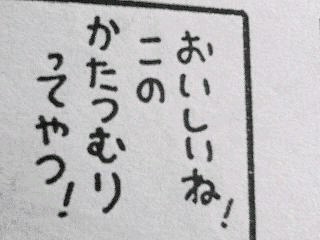 おいしいね!
この
かたつむり
ってやつ!